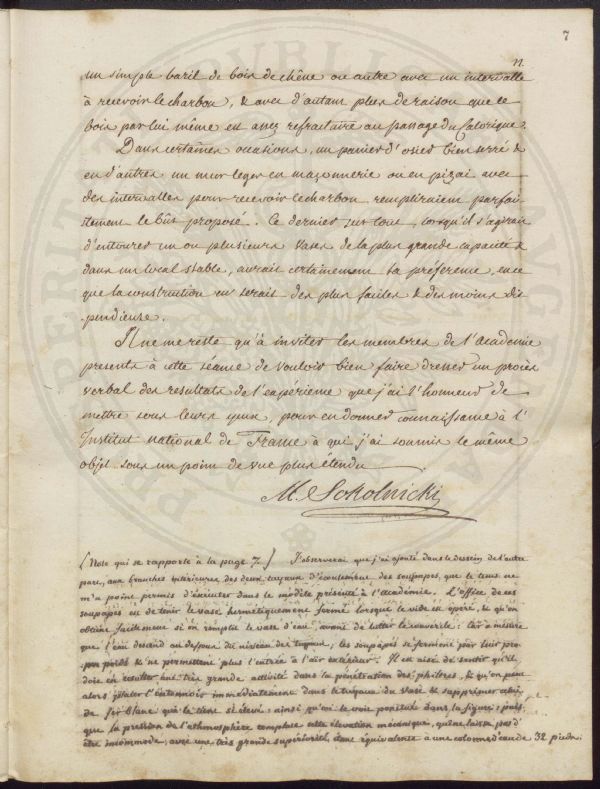 7
11.
un simple baril de bois de chêne ou autre avec un intervalle
à recevoir le charbon, & avec d'autant plus de raison que ce
bois par lui même est assez refractaire au passage du Calorique.
Dans certaines occasions, un panier d'osier bien serré &
en d'autres un mur leger en maçonnerie ou en pizai avec
des intervalles pour recevoir le charbon, rempliraient parfai-
tement le bût proposé. Ce dernier sur tout, lorsqu'il s'agirait
d'entourer un ou plusieurs vases de la plus grande capacité &
dans un local stable, aurait certainement la préférence, en ce
que la construction en serait des plus faciles & des moins dis
pendieuse.
Il ne me reste qu'à inviter les membres de l'Académie
presents à cette séance de vouloir bien faire dresser un procès
verbal des resultats de l'expérience que j'ai l'honneur de
mettre sous leurs yeux, pour en donner connaissance à l'
Institut national de France à qui j'ai soumis le même
objet sous un point de vue plus étendu
M. Sokolnicki
(Note qui se rapporte à la page 7.) J'observerai que j'ai ajouté dans le dessein de l'autre
part, aux branches intérieures des deux tuyaux d'écoulement des soupapes, que le tems ne
m'a point permis d'exécuter dans le modèle présenté à l'Académie. L'office de ces
soupapes est de tenir le vase hermétiquement fermé lorsque le vide est opéré, & qu'on
obtient facilement si on remplit le vase d'eau avant de lutter le couvercle: Car à mesure
que l'eau descend au dessous du niveau des tuyaux, les soupapes se ferment par leur pro-
pre poids & ne permettent plus l'entrée à l'air extérieur. Il est aisé de sentir qu'il
doit en resulter une très grande activité dans la pénétration des philtres, & qu'on peut
alors l'entonnoir immédiatement dans le tuyau du vase & supprimer celui
de fer blanc qui le tient si élevé: ainsi qu'on le voit ponctué dans la figure: puis
que la pression de l'athmosphère remplace cette élévation mécanique, qui ne laisse pas d'
être incommode, avec une très grande superiorité, étant équivalente à une colonne d'eau de 32 pieds.